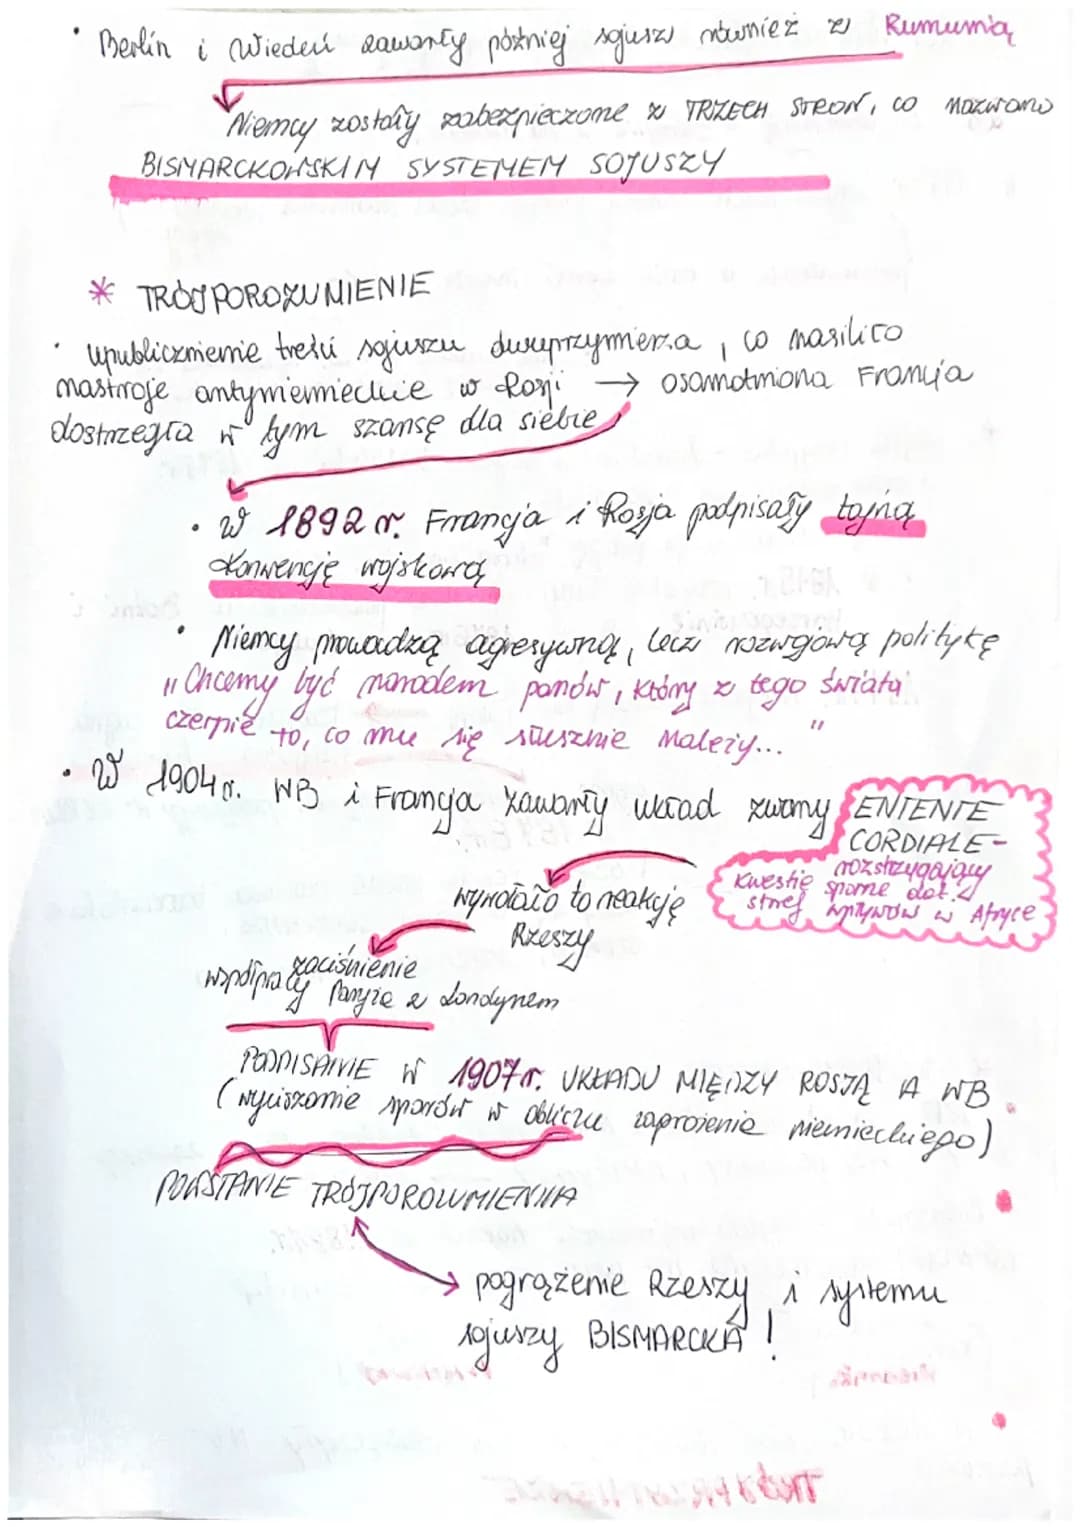 • Berlin i Wiedeń zawarły później sojusz również z Rumunią
Niemcy zostały zabezpieczone z TRZECH STRON, co nazwano
BISMARCKOWSKIM SYSTEMEM SOJUSZY
* TRÓJPOROZUMIENIE
• upublicznienie treści sojuszu dwuprzymierza, co nasiliło
nastroje antyniemieckie w Rosji → osamotniona Francja
dostrzegła w tym szansę dla siebie
• W 1892 r. Francja i Rosja podpisały tajną
konwencję wojskową
• Niemcy prowadzą agresywną, lecz rozwojową politykę
"Chcemy być narodem panów, który z tego świata
czerpie to, co mu się słusznie należy..."
• W 1904 r. WB i Francja zawarły układ zwany ENTENTE
CORDIALE -
rozstrzygający
kwestie sporne dot.
stref wpływów w Afryce
wywołało to reakcję
Rzeszy
zaciśnienie
współpracy Paryża z Londynem
PODPISANIE W 1907 r. UKŁADU MIĘDZY ROSJĄ A WB
(wyciszanie sporów w obliczu zagrożenia niemieckiego)
POWSTANIE TRÓJPOROZUMIENIA
→ pogrążenie Rzeszy i systemu
sojuszy BISMARCKA!